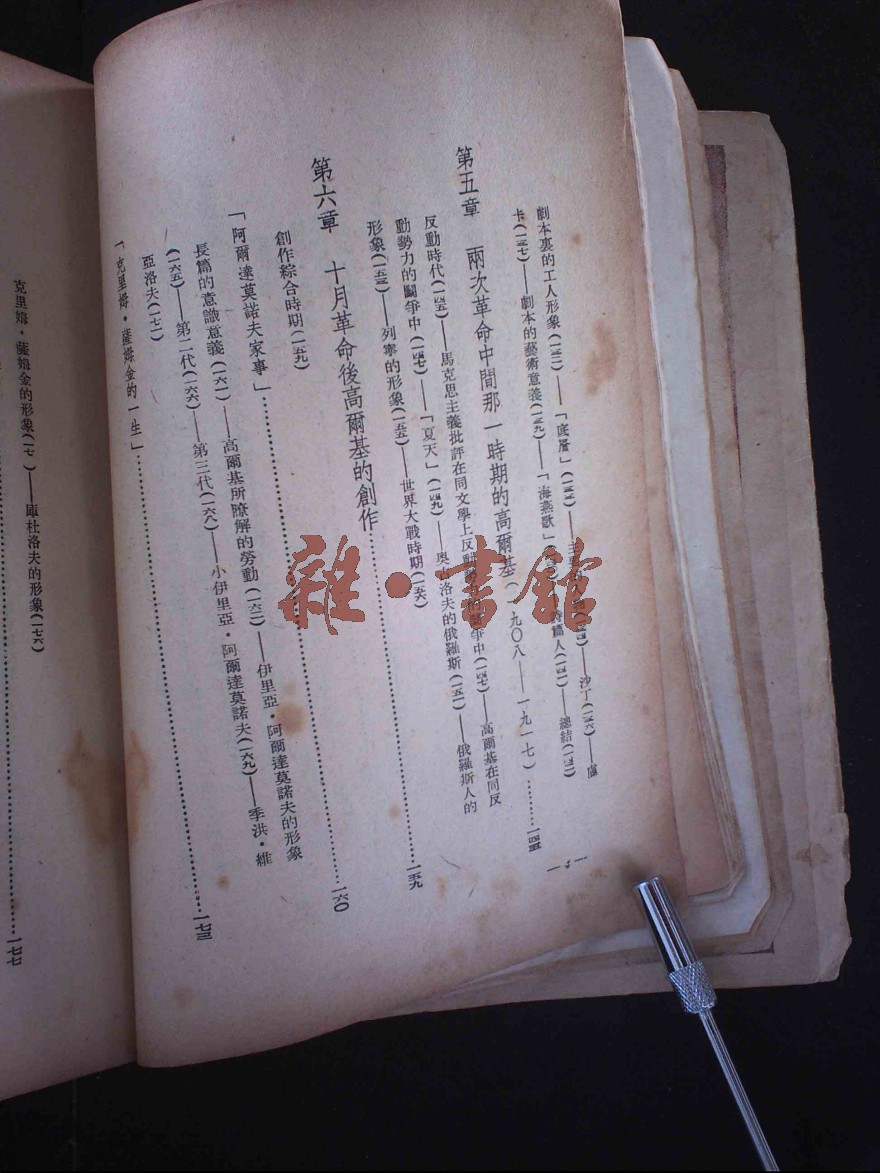 劇本裏的工人形象(一三二)——「底層」(一三三)——主要的人物(一三四)——沙丁(一三六)——盧
卡(一三七)——劇本的藝術意義(一三九)——「海燕歌」詩篇人(一四一)——總結(一四二)
第五章 兩次革命中間那一時期的高爾基(一九〇八——一九一七)……一四五
反動時代(一四五)——馬克思主義批評在同文學上反動爭中(一四七)——高爾基在同反
動勢力的鬭爭中(一四七)——「夏天」(一四九)——奧古洛夫的俄羅斯(一五一)——俄羅斯人的
形象(一五三)——列寧的形象(一五五)——世界大戰時期(一五六)
第六章 十月革命後高爾基的創作……一五九
創作綜合時期(一五九)
「阿爾達莫諾夫家事」……一六〇
長篇的意識意義(一六一)——高爾基所瞭解的勞動(一六二)——伊里亞·阿爾達莫諾夫的形象
(一六五)——第二代(一六六)——第三代(一六八)——小伊里亞·阿爾達莫諾夫(一六九)——季洪·維
亞洛夫(一七二)
「克里姆·薩姆金的一生」……一七三
克里姆·薩姆金的形象(一七)——庫杜洛夫的形象(一七六)
……一七七
雜·書館